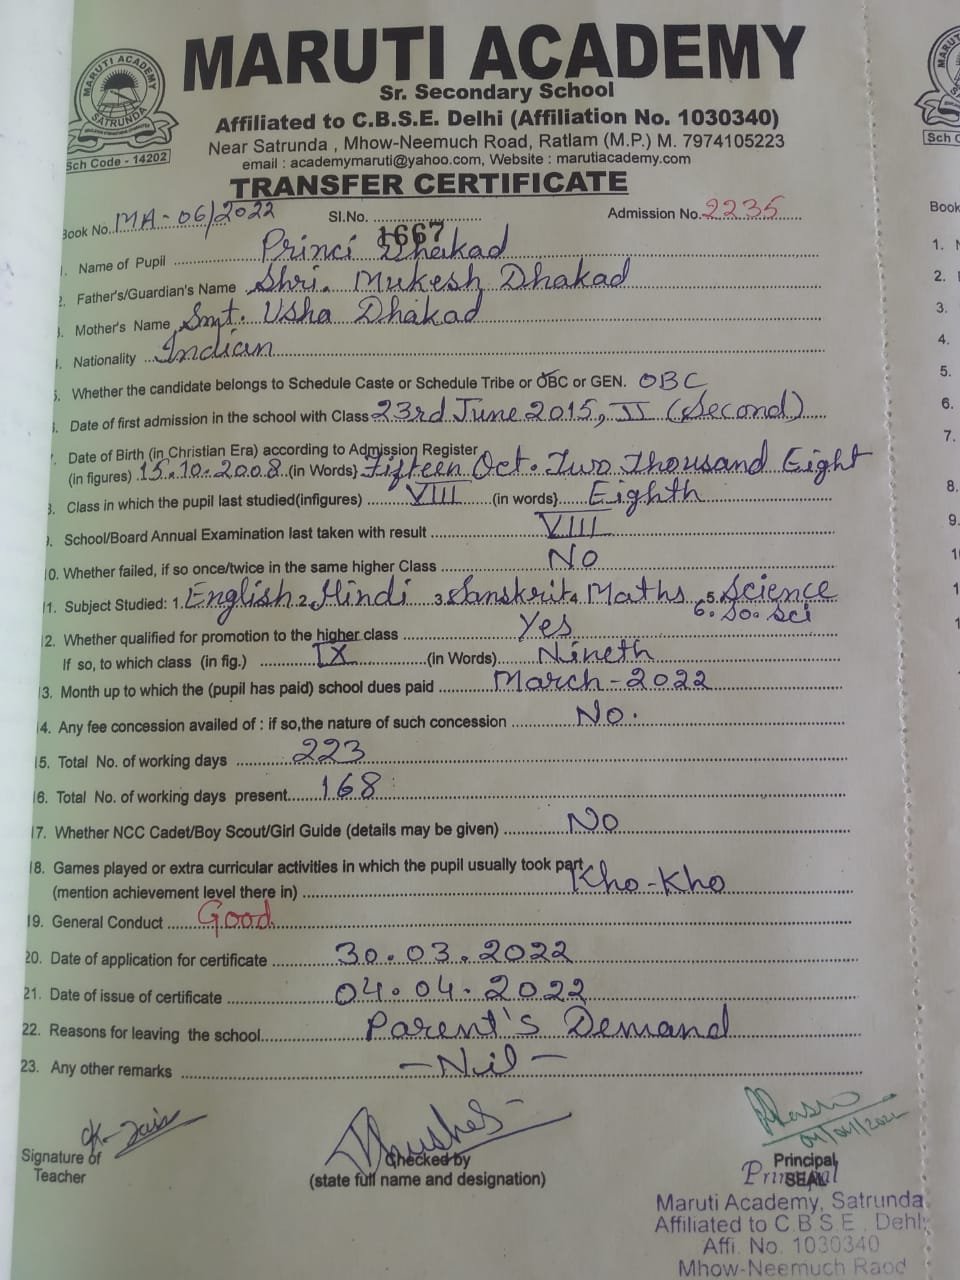 MARUTI ACADEMY
Sr. Secondary School
Affiliated to C.B.S.E. Delhi (Affiliation No. 1030340)
Near Satrunda , Mhow-Neemuch Road, Ratlam (M.P.) M. 7974105223
email : academymaruti@yahoo.com, Website : marutiacademy.com
MARUTI ACADEMY
SATRUNDA
Sch Code - 14202
TRANSFER CERTIFICATE
Book No. MA-06/2022 Sl.No. 1667 Admission No. 2235
1. Name of Pupil Princi Dhakad
2. Father's/Guardian's Name Shri. Mukesh Dhakad
3. Mother's Name Smt. Usha Dhakad
4. Nationality Indian
5. Whether the candidate belongs to Schedule Caste or Schedule Tribe or OBC or GEN. OBC
6. Date of first admission in the school with Class 23rd June 2015, II (Second)
7. Date of Birth (in Christian Era) according to Admission Register
(in figures) 15.10.2008 (in Words} Fifteen Oct. Two Thousand Eight
8. Class in which the pupil last studied(infigures) VIII (in words} Eighth
9. School/Board Annual Examination last taken with result VIII
10. Whether failed, if so once/twice in the same higher Class No
11. Subject Studied: 1. English 2. Hindi 3. Sanskrit 4 Maths 5. Science
6. So. Sci
12. Whether qualified for promotion to the higher class Yes
If so, to which class (in fig.) IX (in Words) Nineth
13. Month up to which the (pupil has paid) school dues paid March-2022
14. Any fee concession availed of : if so,the nature of such concession No.
15. Total No. of working days 223
16. Total No. of working days present 168
17. Whether NCC Cadet/Boy Scout/Girl Guide (details may be given) No
18. Games played or extra curricular activities in which the pupil usually took part
(mention achievement level there in) Kho-Kho
19. General Conduct Good
20. Date of application for certificate 30.03.2022
21. Date of issue of certificate 04.04.2022
22. Reasons for leaving the school Parent's Demand
23. Any other remarks -Nil-
Signature of
Teacher
Checked by
(state full name and designation)
Principal
SEAL
Principal
Maruti Academy, Satrunda
Affiliated to C.B.S.E. Delhi
Affi. No. 1030340
Mhow-Neemuch Raod
Sch C
Book
1. N
2.
3.
4.
5.
6.
7.
8.
9.